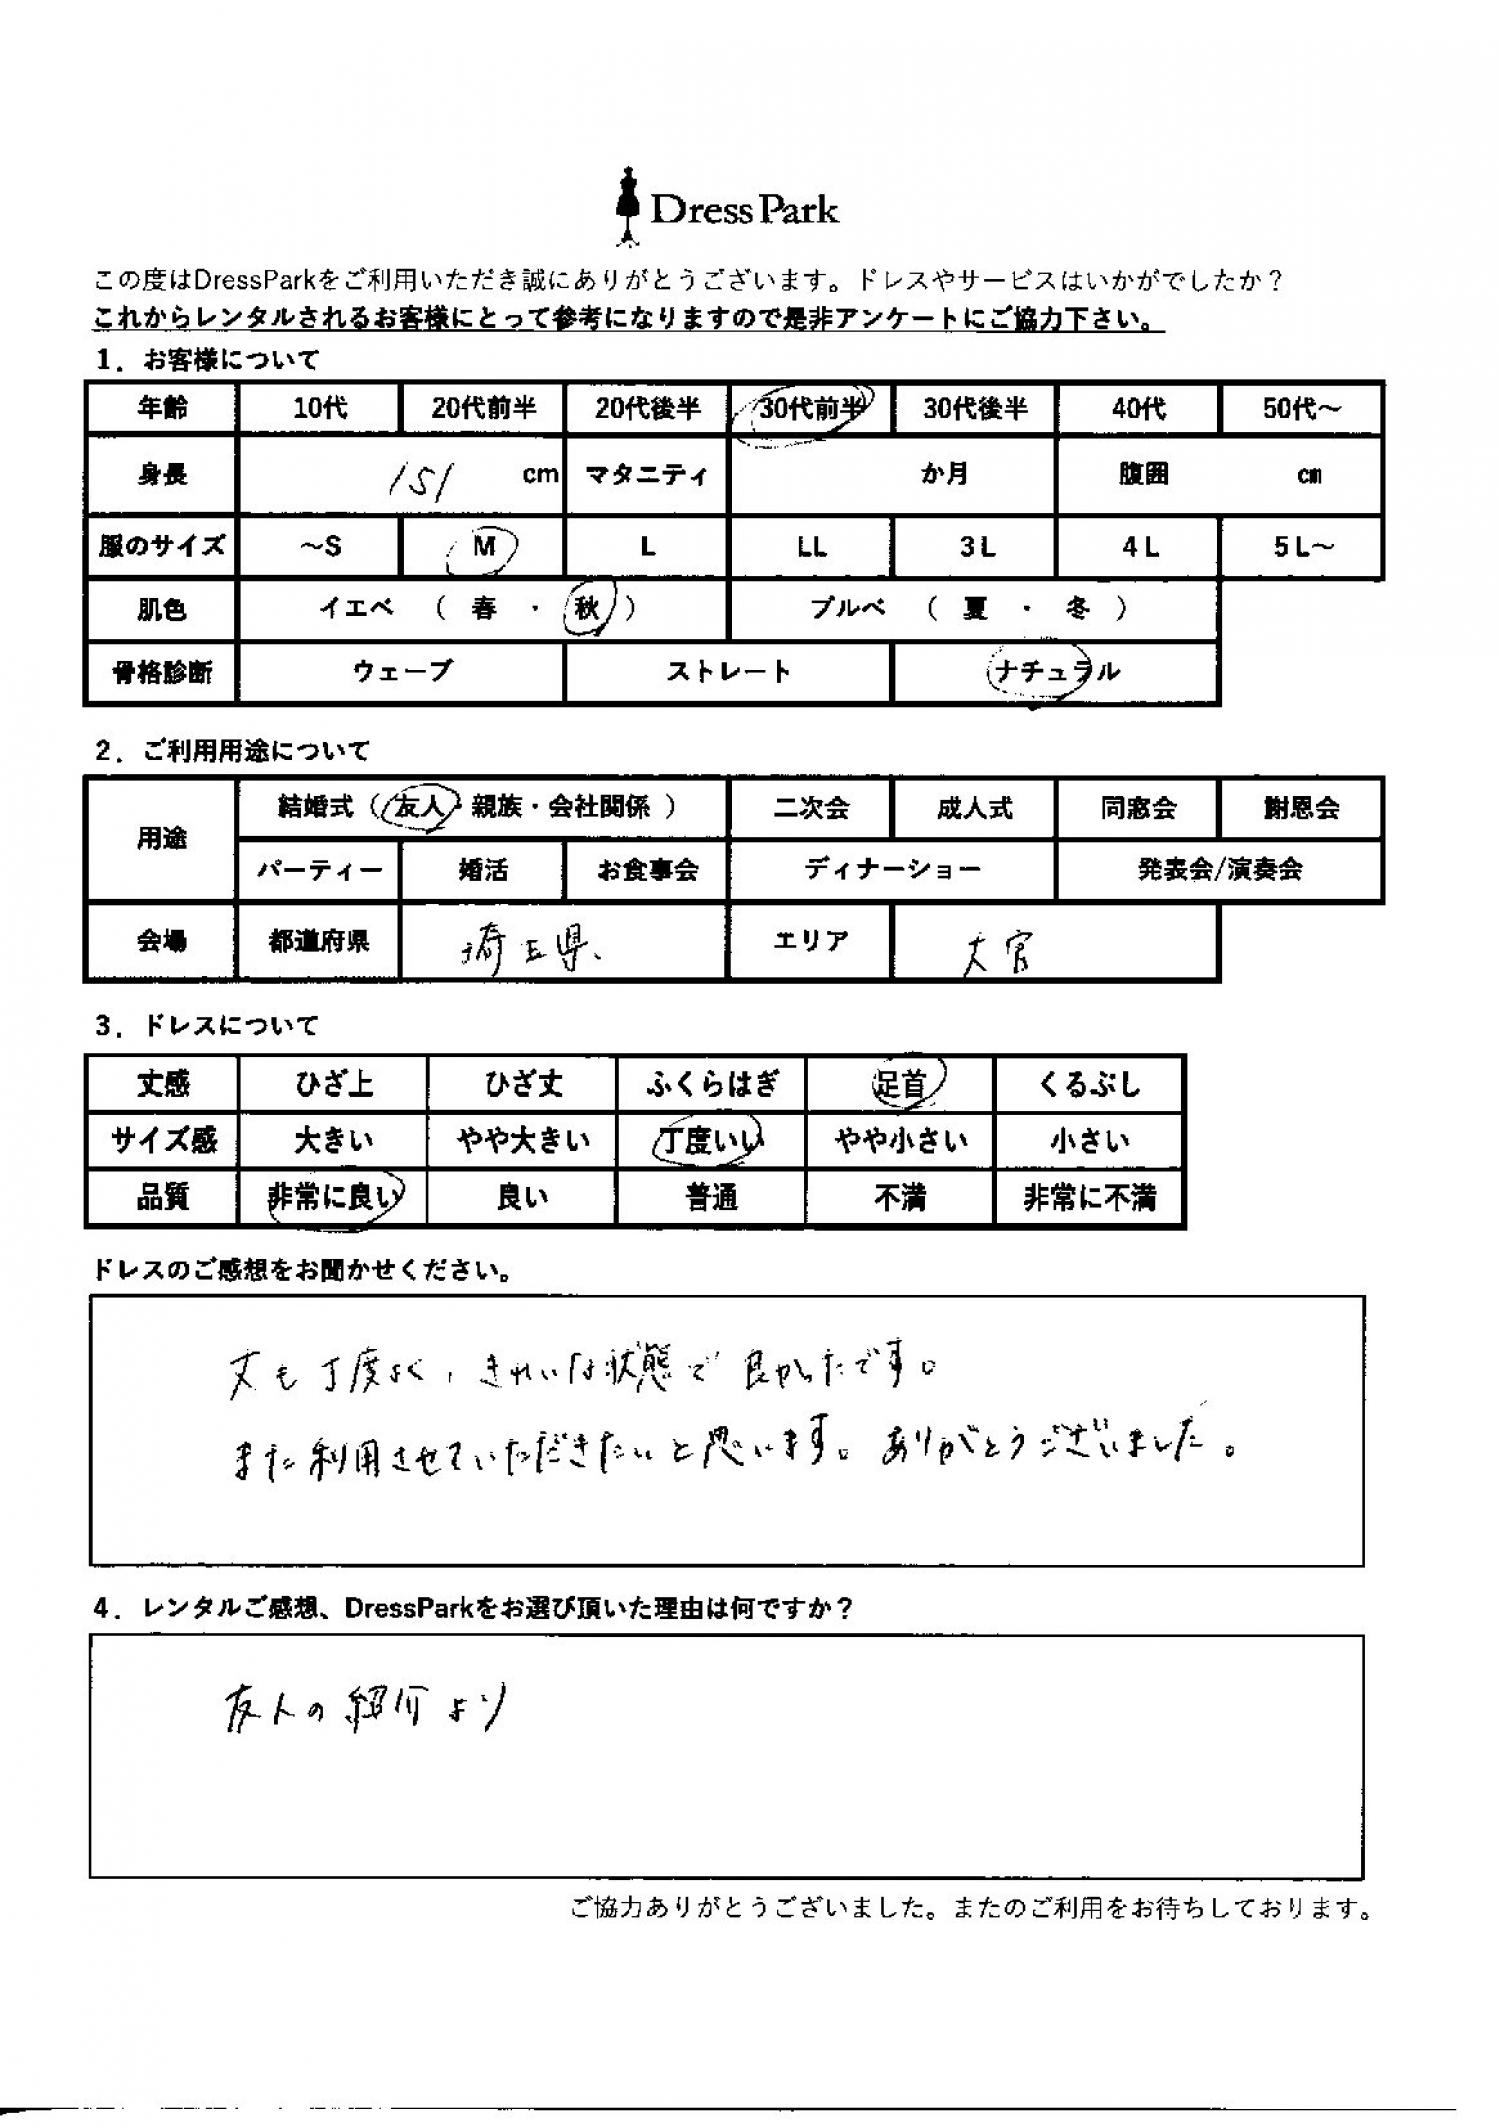 DressPark
この度はDressParkをご利用いただき誠にありがとうございます。ドレスやサービスはいかがでしたか？
これからレンタルされるお客様にとって参考になりますので是非アンケートにご協力下さい。
1．お客様について
年齢 10代 20代前半 20代後半 30代前半 30代後半 40代 50代～
身長 151 cm マタニティ か月 腹囲 cm
服のサイズ ～S M L LL 3L 4L 5L～
肌色 イエベ （ 春 ・ 秋 ） ブルベ （ 夏 ・ 冬 ）
骨格診断 ウェーブ ストレート ナチュラル
2．ご利用用途について
用途 結婚式（友人・親族・会社関係 ） 二次会 成人式 同窓会 謝恩会
パーティー 婚活 お食事会 ディナーショー 発表会/演奏会
会場 都道府県 埼玉県、 エリア 大宮
3．ドレスについて
丈感 ひざ上 ひざ丈 ふくらはぎ 足首 くるぶし
サイズ感 大きい やや大きい 丁度いい やや小さい 小さい
品質 非常に良い 良い 普通 不満 非常に不満
ドレスのご感想をお聞かせください。
丈も丁度よく、きれいな状態で良かったです。
また利用させていただきたいと思います。ありがとうございました。
4．レンタルご感想、DressParkをお選び頂いた理由は何ですか？
友人の紹介より
ご協力ありがとうございました。またのご利用をお待ちしております。